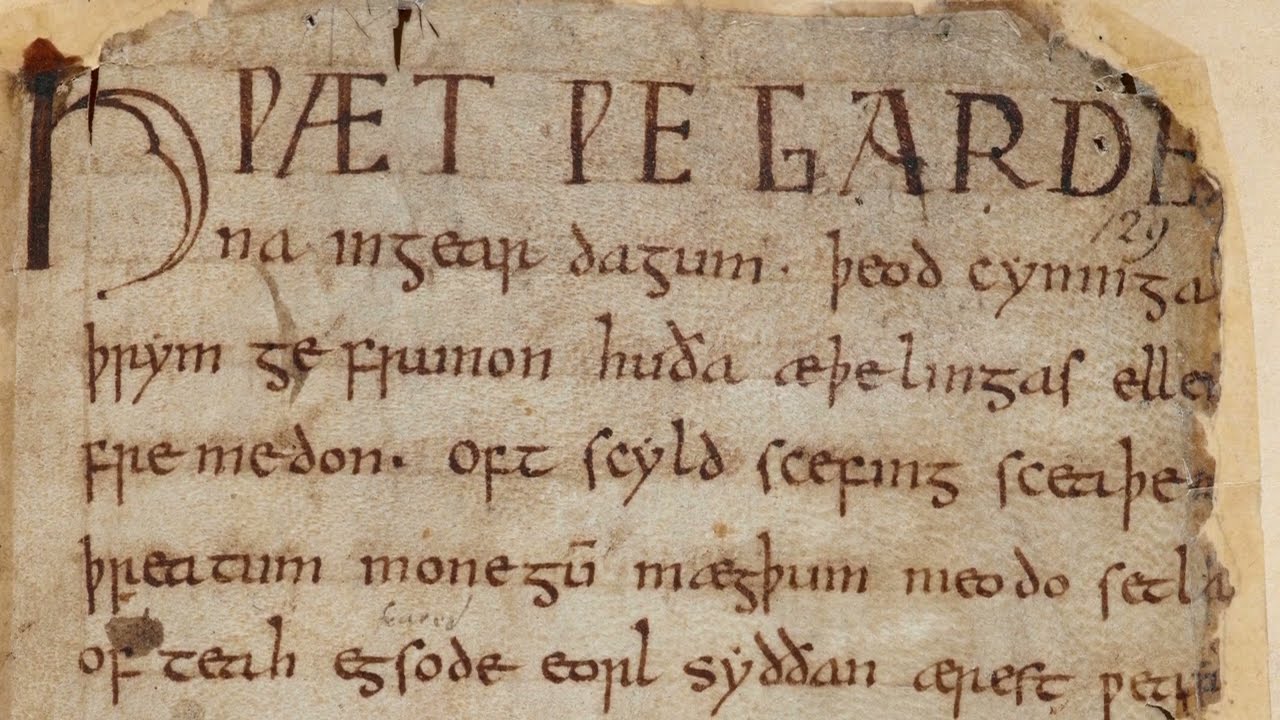 HǷÆT ǷE GARDE
na ingear dagum. þeod cyninga
þrym ge frunon huða æþelingas ellen
fremedon. oft scyld scefing sceaþe
129
þreatum monegū mægþum meodo setla
of teah egsode eorl syððan ærest ƿear